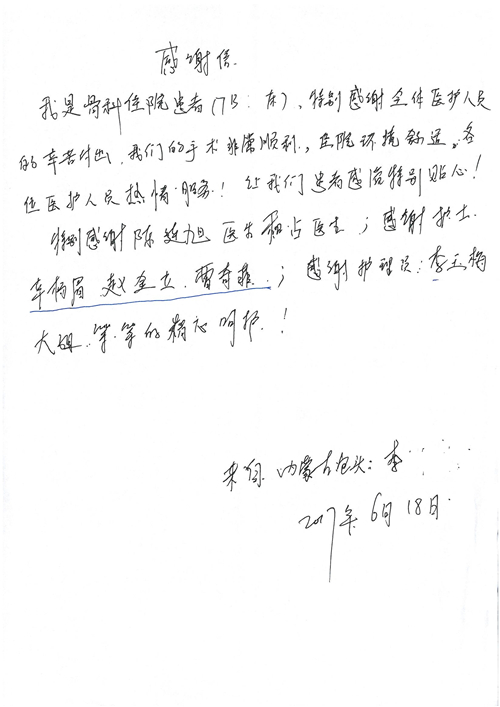 感谢信
我是骨科住院患者(7B : 床),特别感谢全体医护人员
的辛苦付出,我们的手术非常顺利,医院环境舒适。各
位医护人员热情服务!让我们患者感觉特别贴心!
特别感谢陈 旭医生和占医生;感谢护士
车 眉 赵奎立、雷奇菲;感谢护理员:李玉梅
大姐、等等的精心呵护!
来自内蒙古包头:李
2017年6月18日